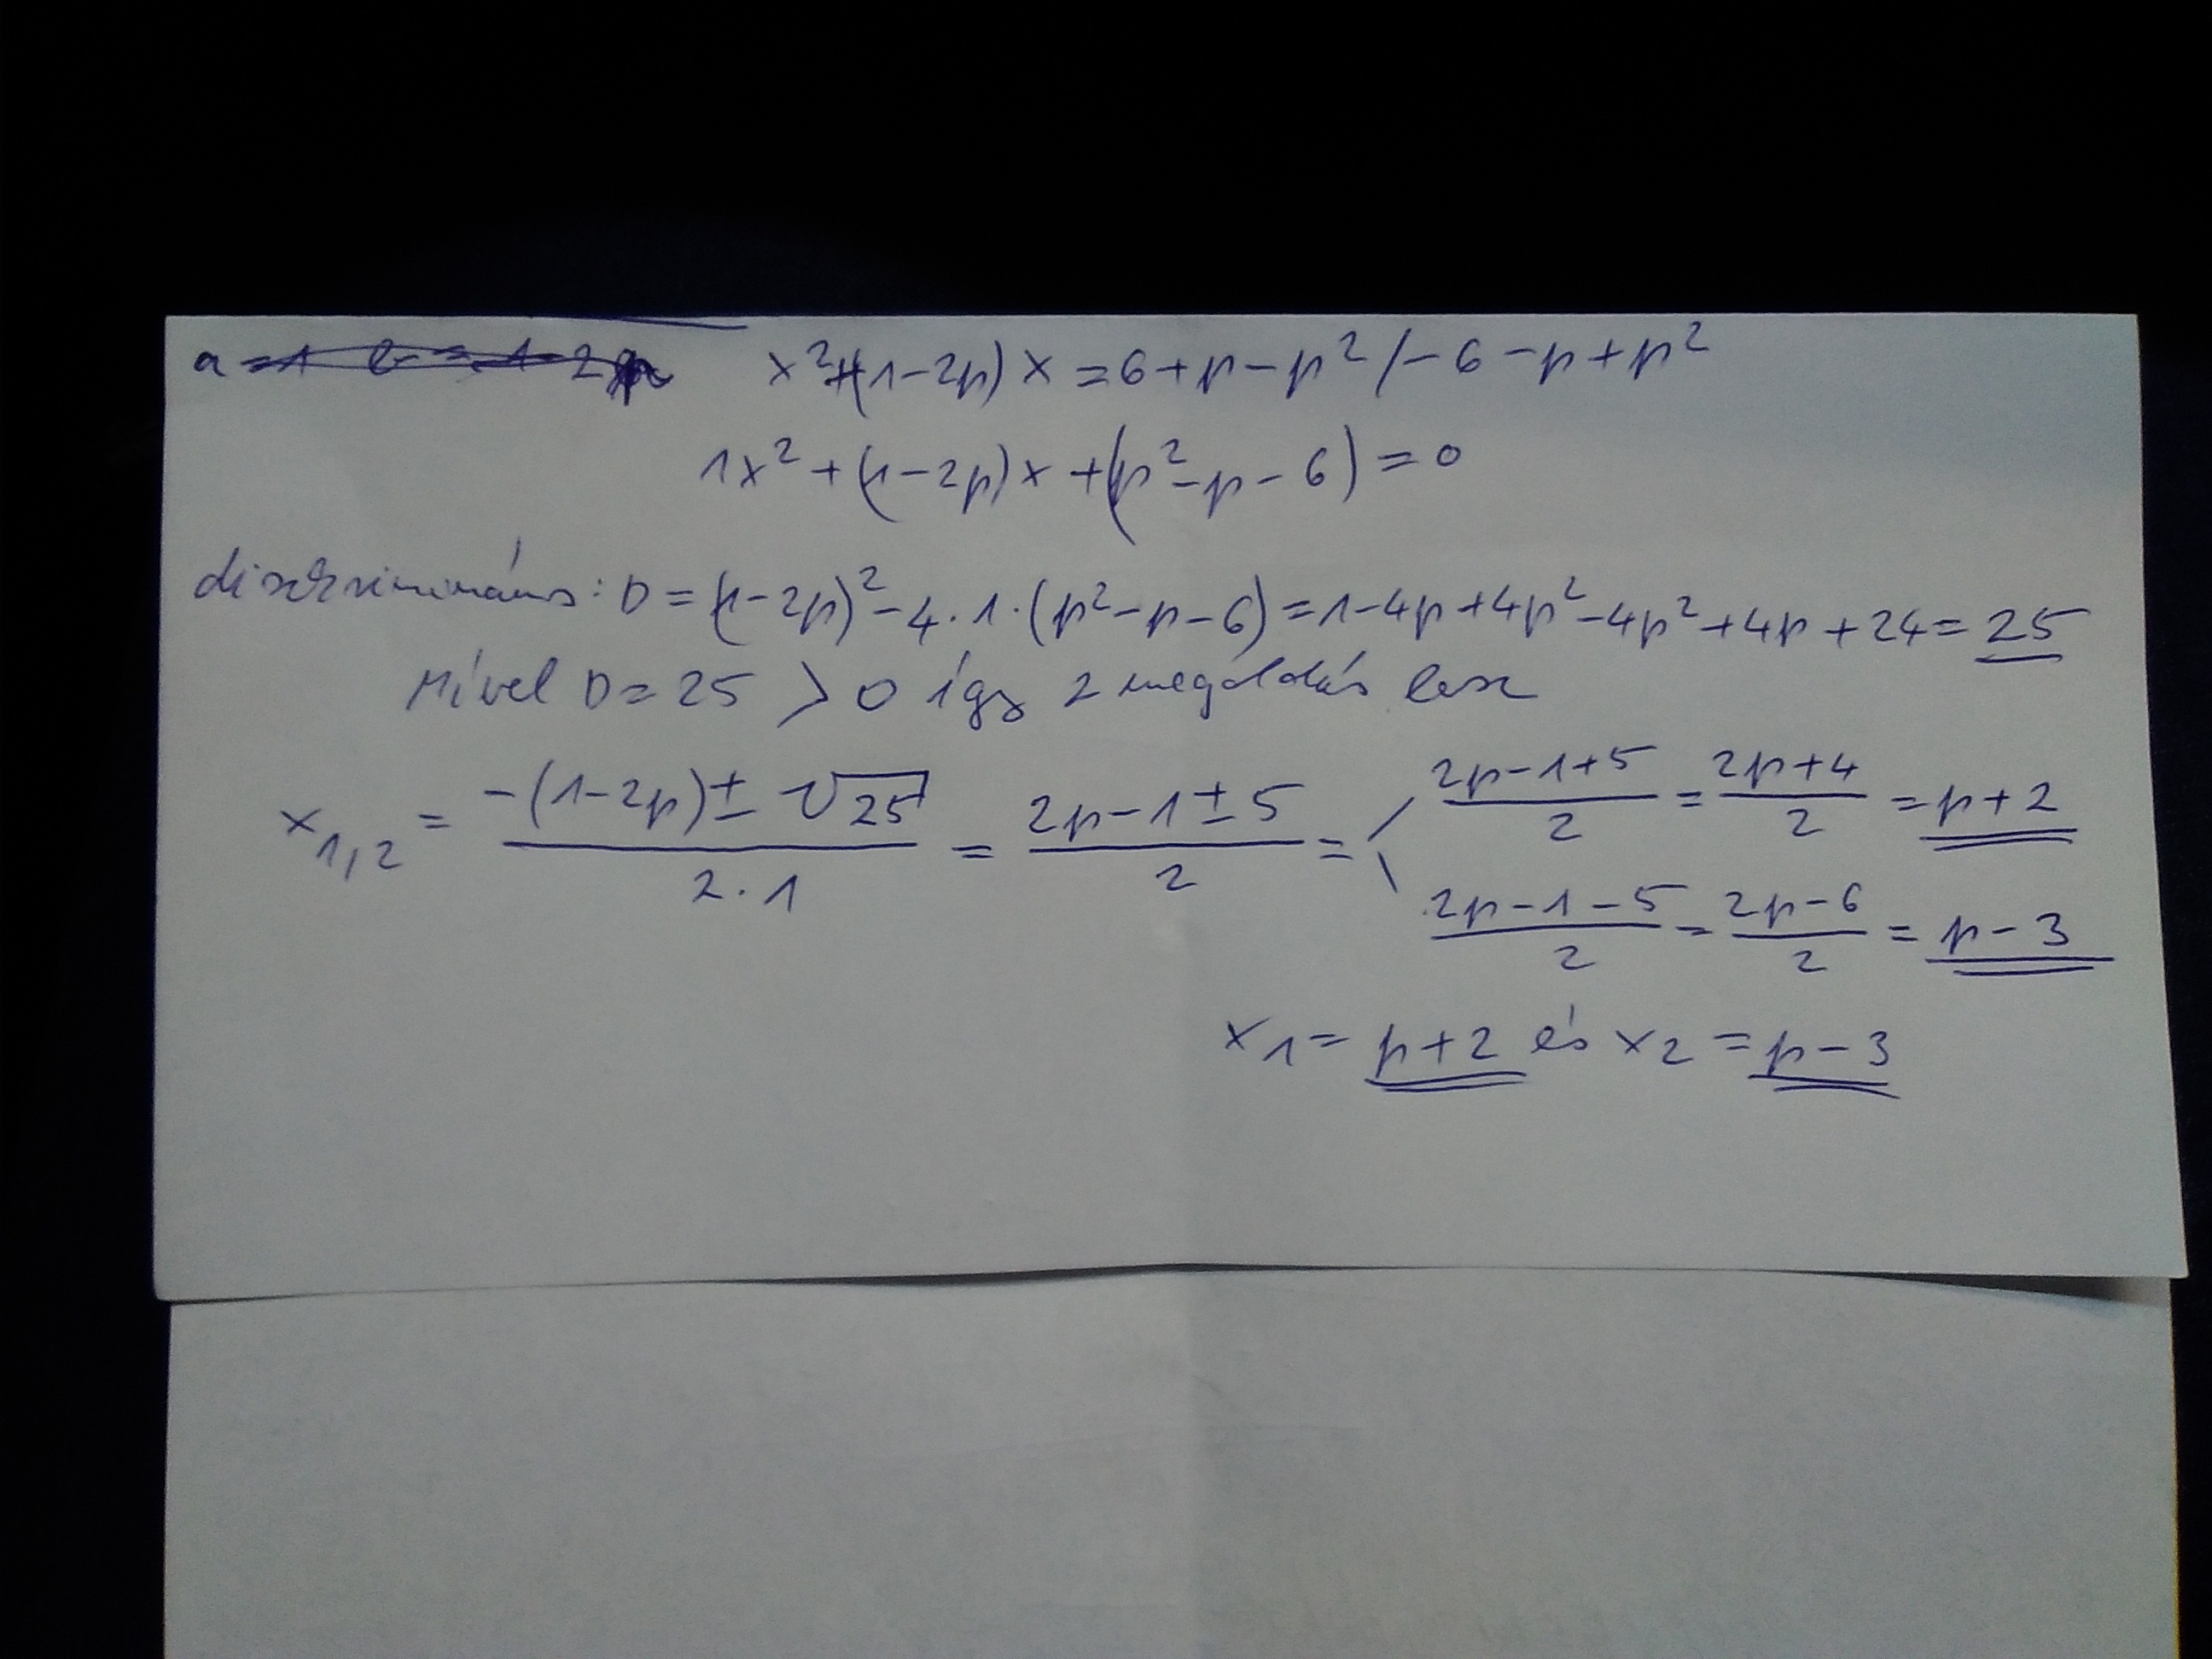 a = 1 b = 1 - 2p x² + (1-2p) x = 6 + p - p² / - 6 - p + p²
1x² + (1-2p)x + (p² - p - 6) = 0
diszkrimináns: D = (1-2p)² - 4·1·(p² - p - 6) = 1 - 4p + 4p² - 4p² + 4p + 24 = 25
Mível D = 25 > 0 így 2 megoldás lesz
x₁,₂ = (-(1-2p) ± √25)/(2·1) = (2p-1±5)/2 = (2p-1+5)/2 = (2p+4)/2 = p+2
(2p-1-5)/2 = (2p-6)/2 = p-3
x₁ = p+2 és x₂ = p-3